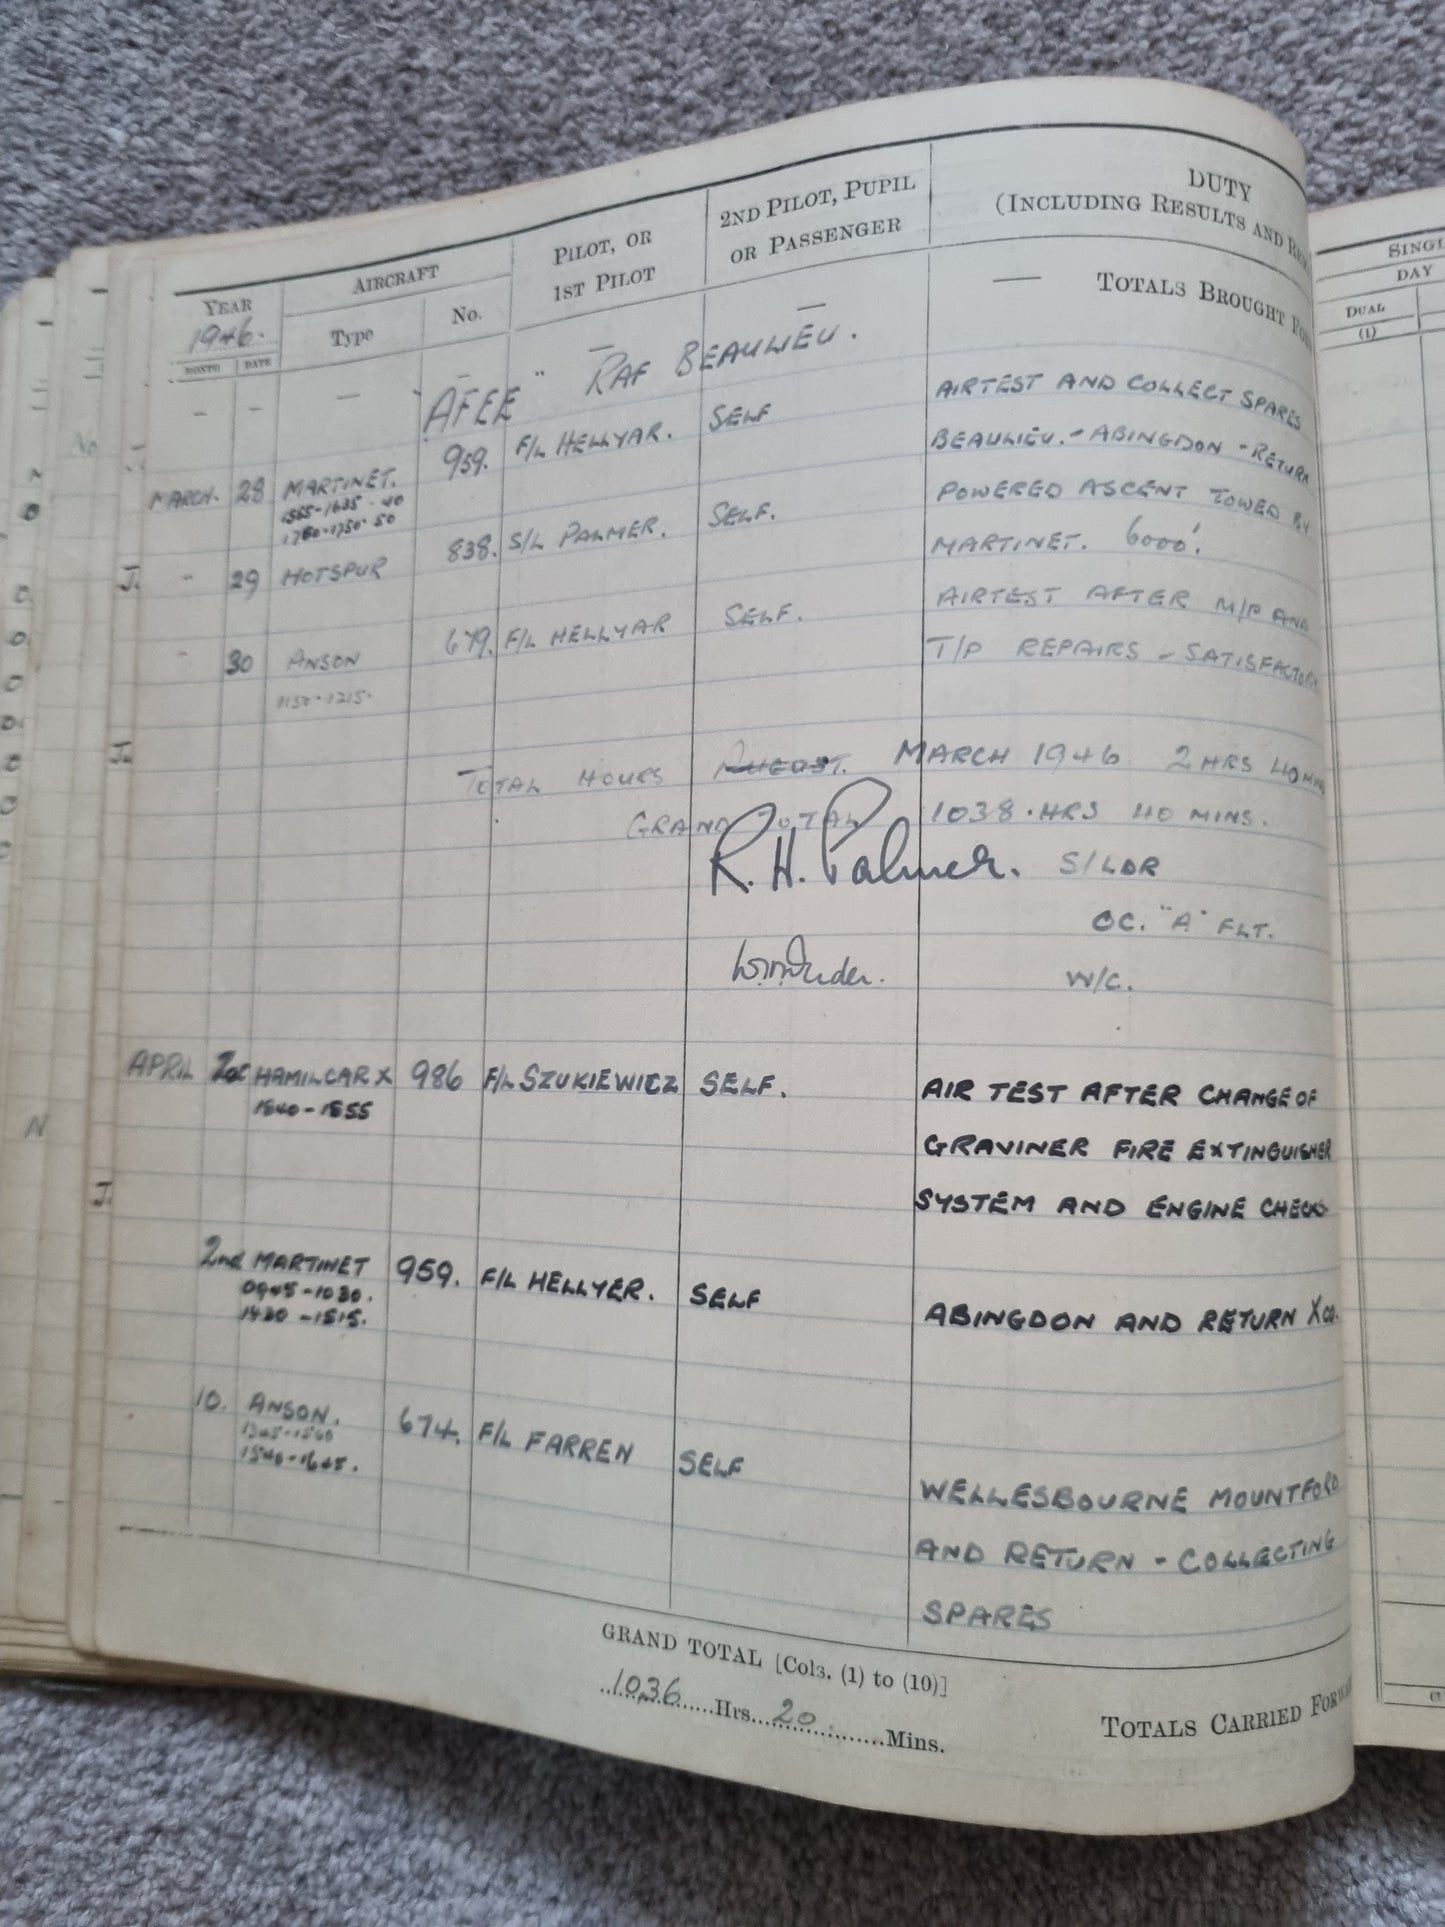 YEAR
1946.
MONTH DATE
AIRCRAFT
Type
No.
PILOT, OR
1ST PILOT
2ND PILOT, PUPIL
OR PASSENGER
DUTY
(INCLUDING RESULTS AND
— — — — — — — TOTALS BROUGHT
"AFEE" RAF BEAULIEU.
MARCH. 28 MARTINET. 959. F/L HELLYAR. SELF AIRTEST AND COLLECT SPARES
1555-1635 · 40 BEAULIEU. - ABINGDON - RETURN
1700-1750 · 50
" 29 HOTSPUR 838. S/L PALMER. SELF. POWERED ASCENT TOWED BY
MARTINET. 6000'.
" 30 ANSON 679. F/L HELLYAR SELF. AIRTEST AFTER M/P AND
1150-1215. T/P REPAIRS - SATISFACTORY
TOTAL HOURS MARCH 1946 2 HRS 40 MINS
GRAND TOTAL 1038 · HRS 40 MINS.
R. H. Palmer. S/LDR
OC. "A" FLT.
W/C.
APRIL HAMILCAR X 986 F/L SZUKIEWICZ SELF. AIR TEST AFTER CHANGE OF
1840-1855 GRAVINER FIRE EXTINGUISHER
SYSTEM AND ENGINE CHECKS
2nd MARTINET 959. F/L HELLYER. SELF
0945-1030. ABINGDON AND RETURN XCO.
1430-1515.
10. ANSON. 674. F/L FARREN SELF
1540-1645. WELLESBOURNE MOUNTFORD
AND RETURN - COLLECTING
SPARES
GRAND TOTAL [Cols. (1) to (10)]
1036 Hrs. 20 Mins.
TOTALS CARRIED
DAY
DUAL
(1)
J.
J.
J.
No
N